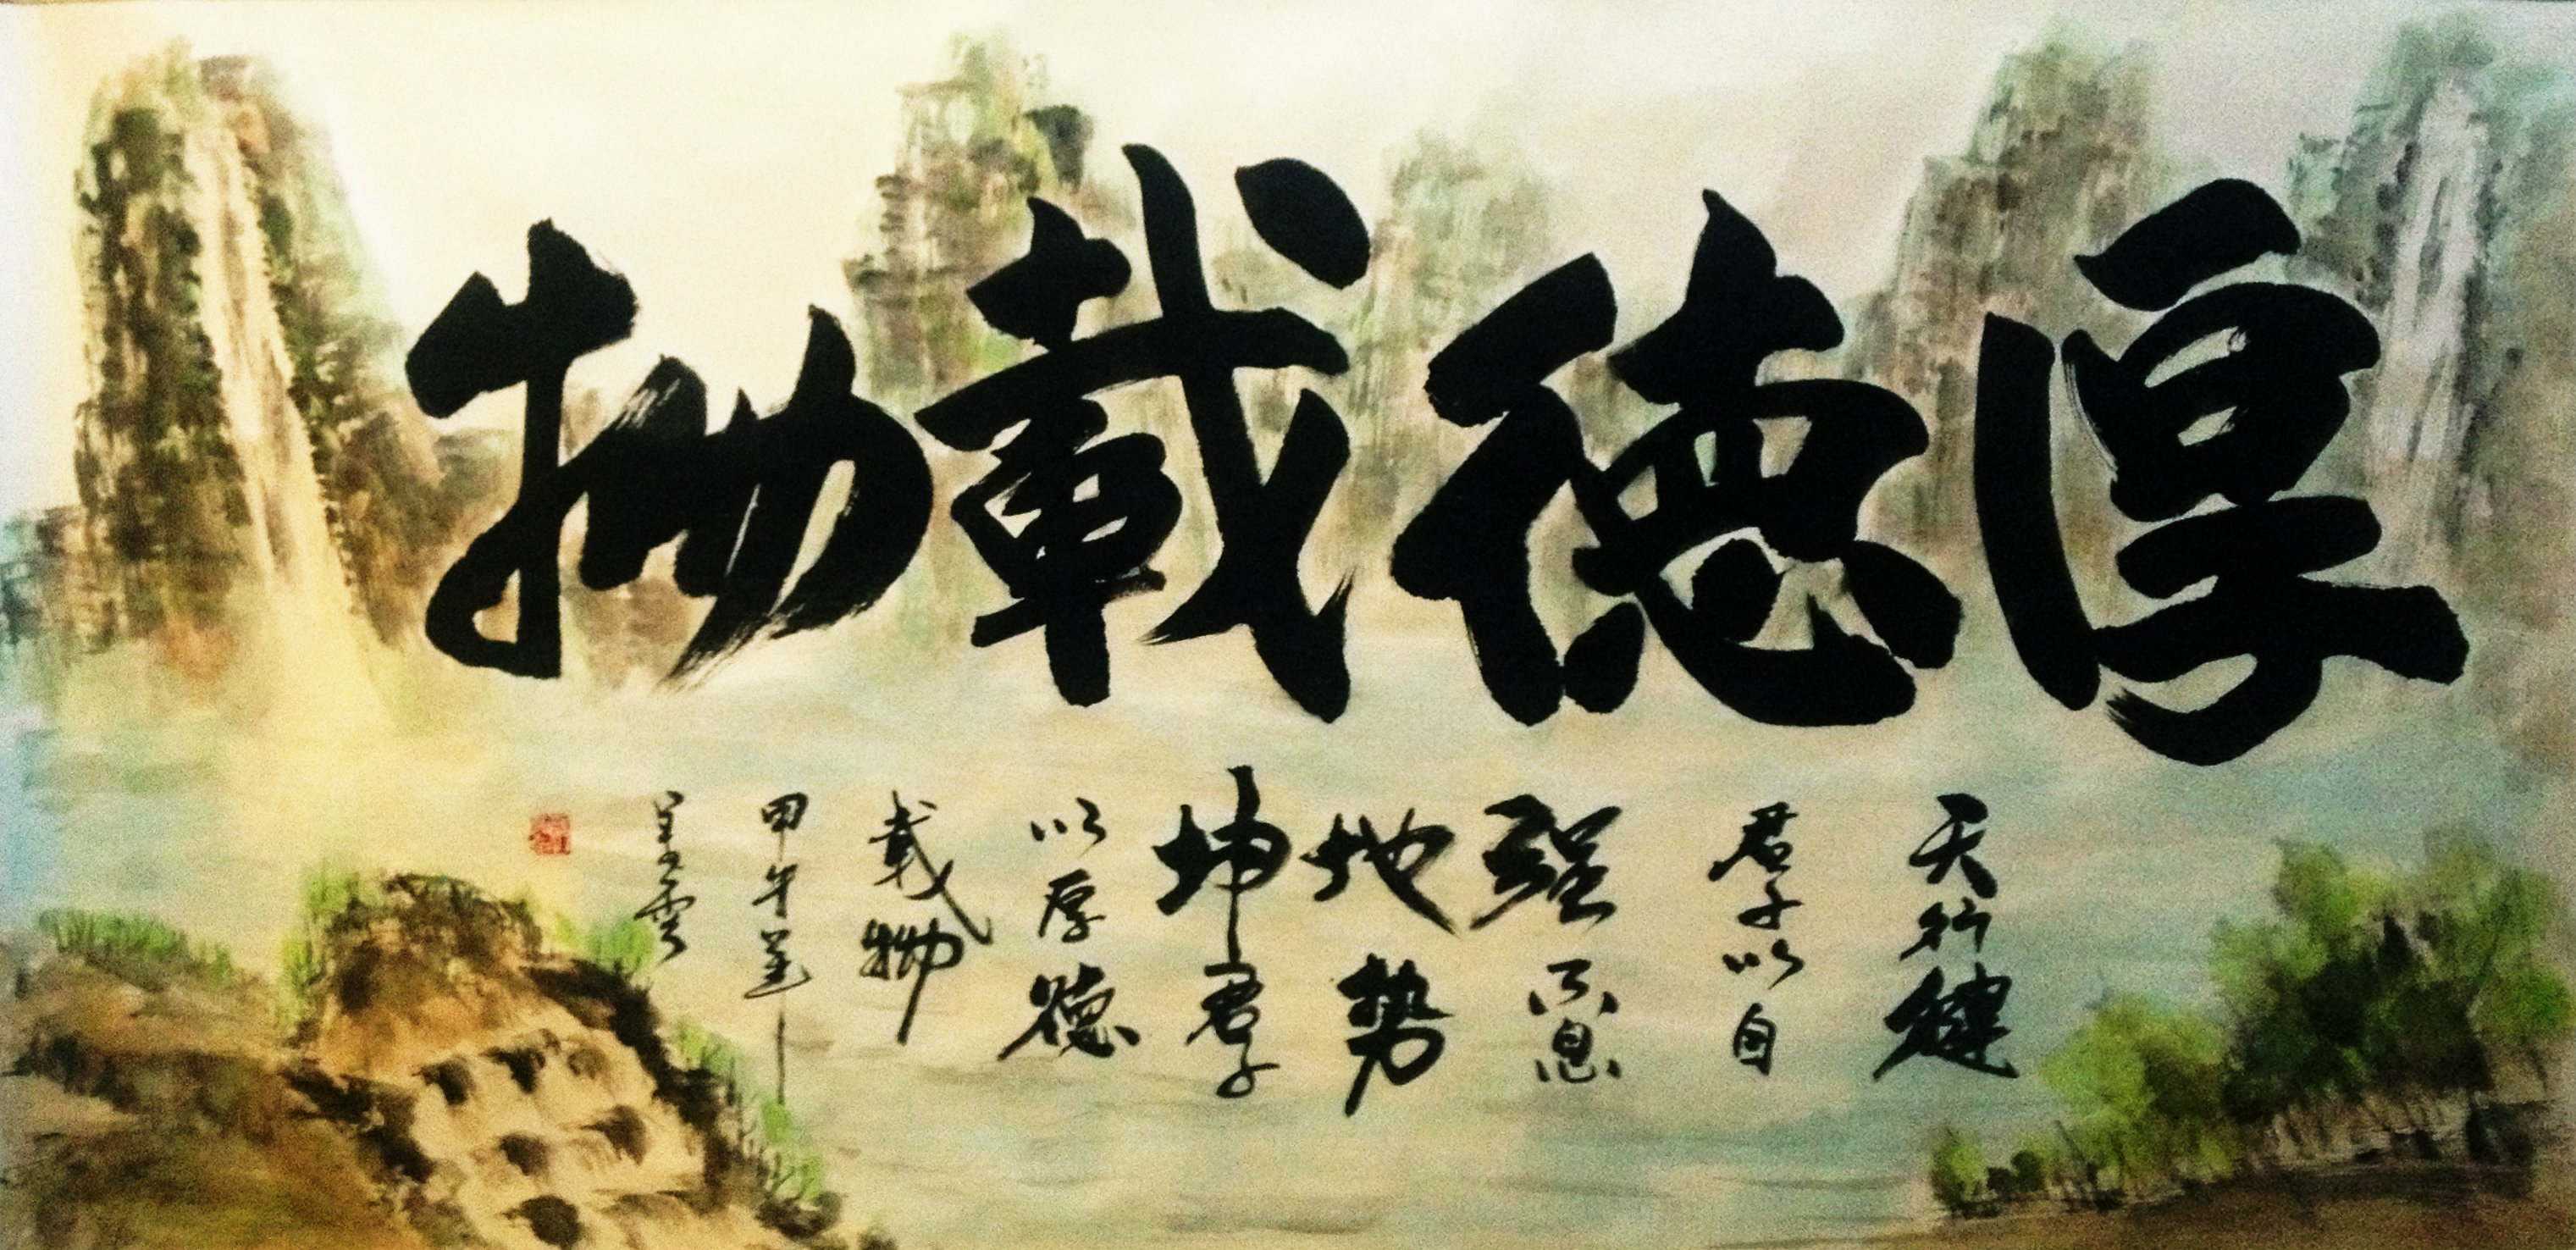 厚德載物
天行健
君子以自
强不息
地势
坤君子
以厚德
載物
甲午年